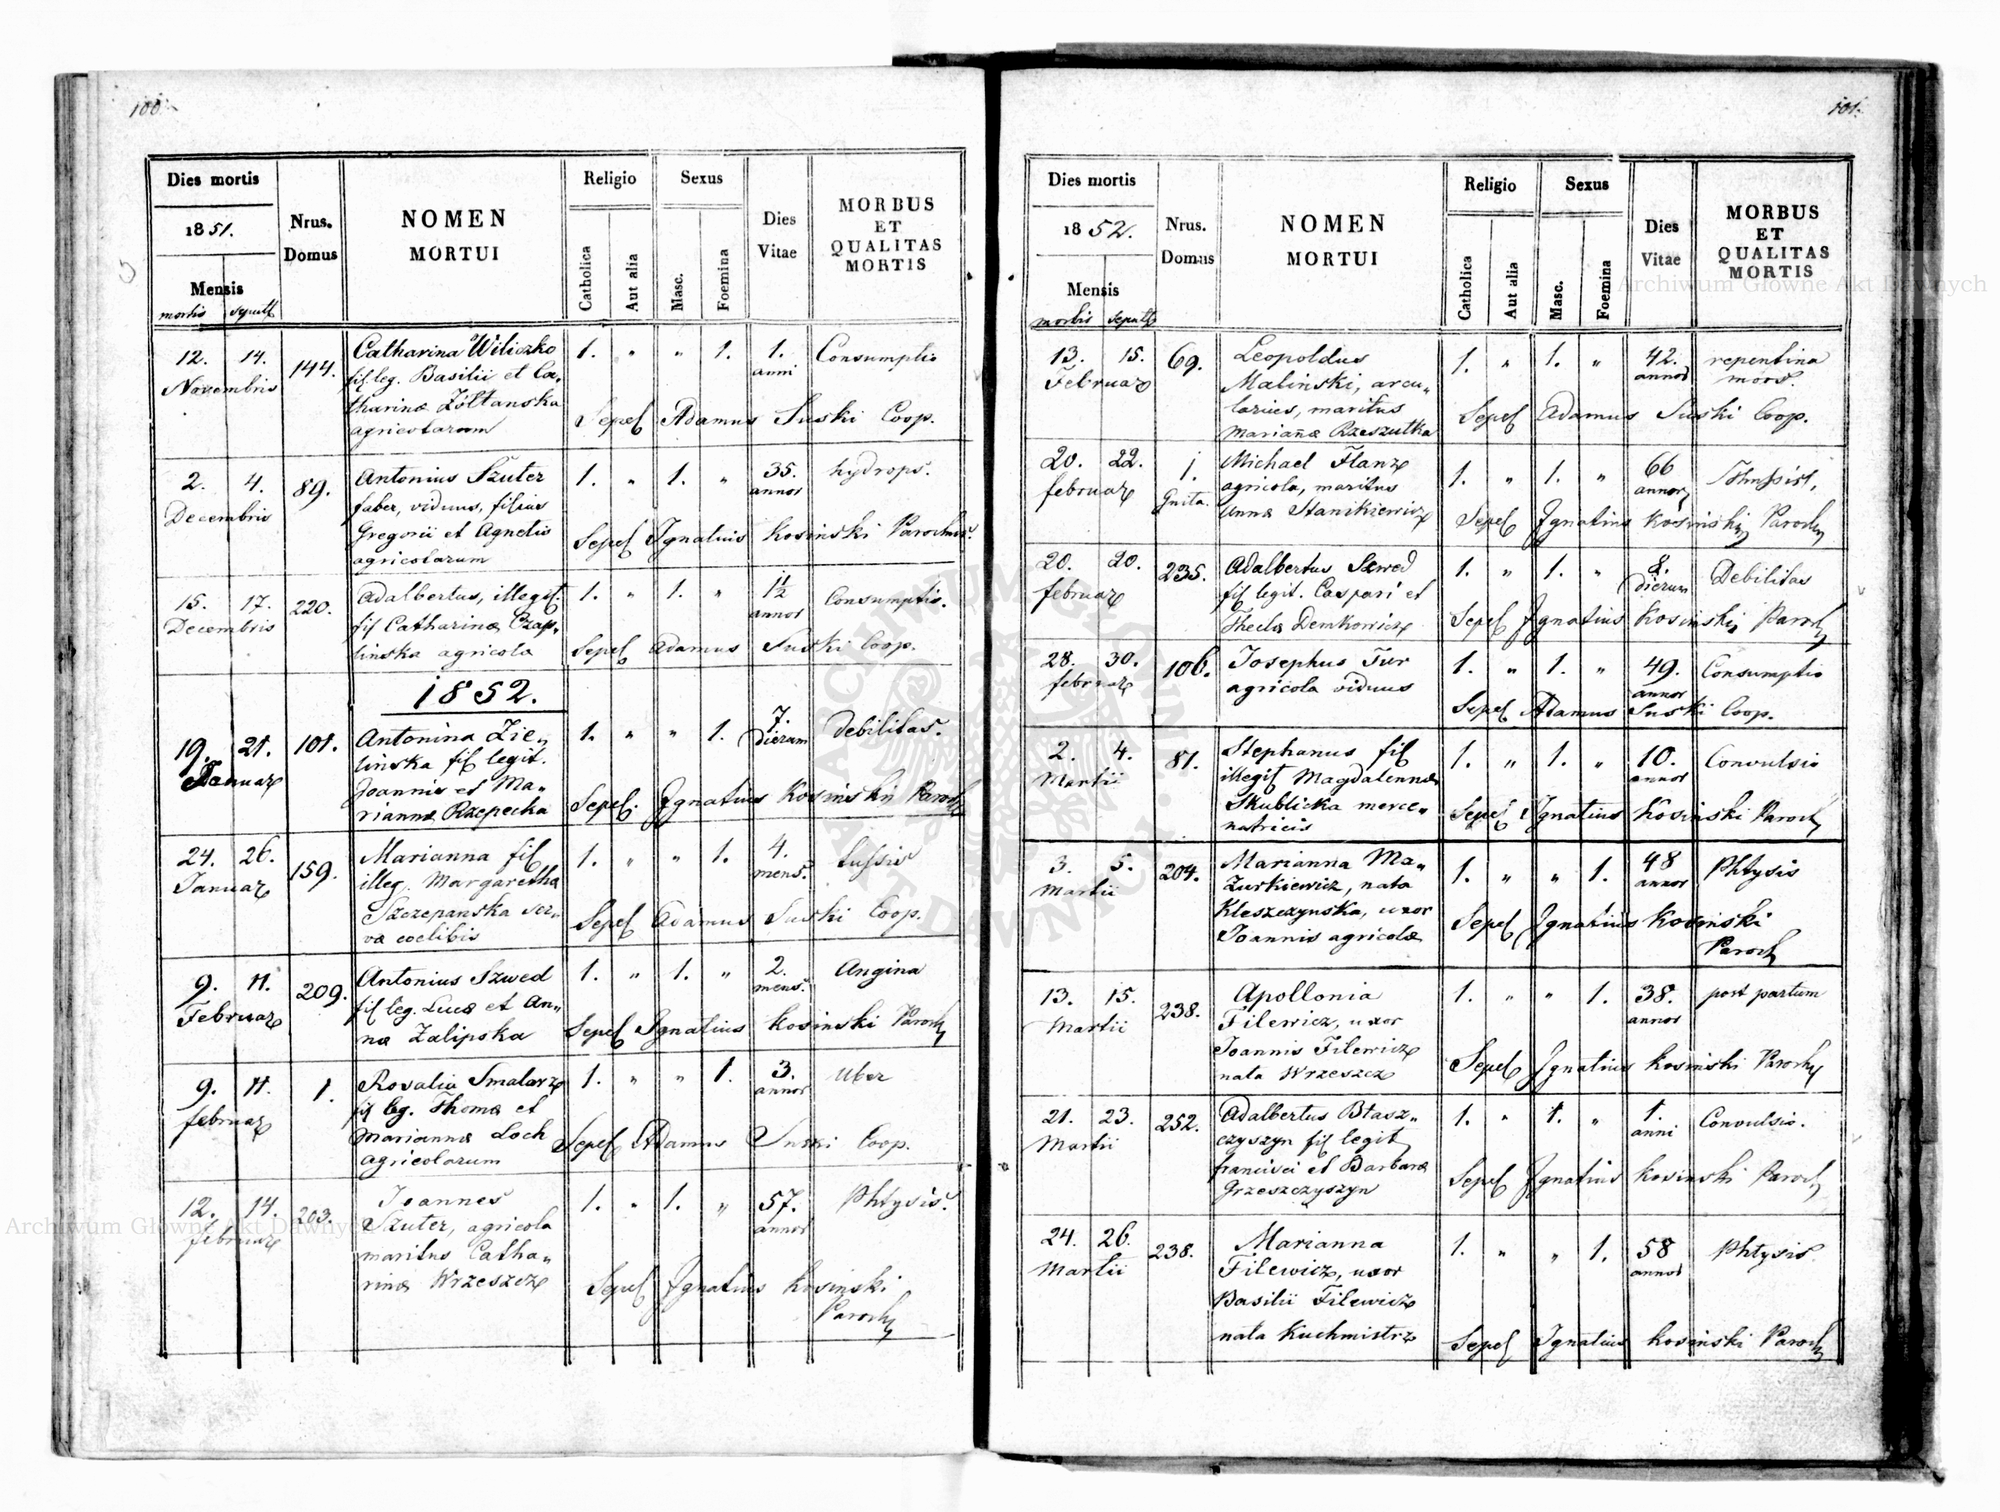 100.
Dies mortis
1851.
Mensis
mortis sepult
Nrus. Domus
NOMEN
MORTUI
Religio
Catholica
Aut alia
Sexus
Masc.
Foemina
Dies
Vitae
MORBUS
ET
QUALITAS
MORTIS
12. 14. 144. Catharina Wiliczko 1. " " 1. 1. Consumptio
Novembris fil leg. Basilii et Ca- anni
tharina Żółtanska Sepel Adamus Suski Coop.
agricolarum
2. 4. 89. Antonius Szuter 1. " 1. " 35. hydrops.
Decembris faber, viduus, filius annor
Gregorii et Agnetis Sepel Ignatius Kosinski Parochus.
agricolarum
15. 17. 220. Adalbertus, illegit. 1. " 1. " 1½ Consumptio.
Decembris fil Catharina Czap- annor
linska agricola Sepel Adamus Suski Coop.
1852.
19. 21. 101. Antonina Zie- 1. " " 1. 7. Debilitas.
Januar linska fil legit. dierum
Joannis et Ma- Sepel. Ignatius Kosinski Paroch
rianna Rzepecka
24. 26. 159. Marianna fil 1. " " 1. 4. tussis
Januar illeg. Margaretha mens.
Szczepanska ser- Sepel Adamus Suski Coop.
va coelibis
9. 11. 209. Antonius Szwed 1. " 1. " 2. Angina
Februar fil leg. Luca et An- mens.
na Zalipska Sepel Ignatius Kosinski Paroch
9. 11. 1. Rosalia Smalarz 1. " " 1. 3. Uber
februar fil leg. Thoma et annor
Marianna Loch Sepel Adamus Suski Coop.
agricolarum
12. 14. 203. Joannes 1. " 1. " 57. Phtysis.
februar Szuter, agricola annor
maritus Catha-
rina Wrzeszcz Sepel Ignatius Kosinski
Paroch
101.
Dies mortis
1852.
Mensis
mortis sepult
Nrus.
Domus
NOMEN
MORTUI
Religio
Catholica
Aut alia
Sexus
Masc.
Foemina
Dies
Vitae
MORBUS
ET
QUALITAS
MORTIS
13. 15. 69. Leopoldus 1. " 1. " 42. repentina
Februar Malinski, arcu- annor mors.
larius, maritus Sepel Adamus Suski Coop.
Marianna Rzeszutka
20. 22. 1. Michael Flanz 1. " 1. " 66
februar Gnita. agricola, maritus annor
Anna Stanikiewicz Sepel Ignatius Kosinski Paroch
20. 20. 235. Adalbertus Szwed 1. " 1. " 8. Debilitas
februar fil legit. Caspari et dierum
Thecla Demkowicz Sepel Ignatius Kosinski Paroch
28. 30. 106. Josephus Tur 1. " 1. " 49. Consumptio
februar agricola viduus annor
Sepel Adamus Suski Coop.
2. 4. 81. Stephanus fil 1. " 1. " 10. Convulsio
Martii illegit Magdalenna annor
Skublicka merce- Sepel Ignatius Kosinski Paroch
natricis
3. 5. 204. Marianna Ma- 1. " " 1. 48 Phtysis
Martii zurkiewicz, nata annor
Kleszczynska, uxor Sepel Ignatius Kosinski
Joannis agricola Paroch
13. 15. 238. Apollonia 1. " " 1. 38. post partum
Martii Filewicz, uxor annor
Joannis Filewicz Sepel Ignatius Kosinski Paroch
nata Wrzeszcz
21. 23. 252. Adalbertus Błasz- 1. " 1. " 1. Convulsio.
Martii czyszyn fil legit anni
francisci et Barbara Sepel Ignatius Kosinski Paroch
Grzeszczyszyn
24. 26. 238. Marianna 1. " " 1. 58 Phtysis
Martii Filewicz, uxor annor
Basilii Filewicz
nata Kuchmistrz Sepel Ignatius Kosinski Paroch
Archiwum Główne Akt Dawnych
Archiwum Główne Akt Dawnych
ARCHIWUM GŁÓWNE AKT DAWNYCH